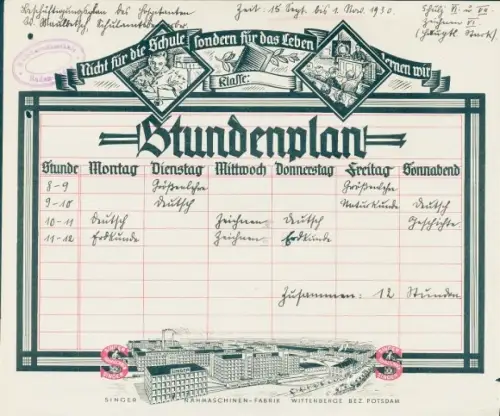 Beschäftigungsplan des Hospitanten Zeit: 15. Sept. bis 1. Nov. 1930. Schulj. VI. u. VII.
Schulamtsbewerber Zeichnen VI.
(Hauptl. Stark)
Nicht für die Schule sondern für das Leben lernen wir
Klasse:
Stundenplan
Stunde Montag Dienstag Mittwoch Donnerstag Freitag Sonnabend
8-9 Größenlehre Größenlehre
9-10 Deutsch Naturkunde Deutsch
10-11 Deutsch Zeichnen Deutsch Geschichte
11-12 Erdkunde Zeichnen Erdkunde
Zusammen: 12 Stunden
SINGER NÄHMASCHINEN-FABRIK WITTENBERGE BEZ. POTSDAM